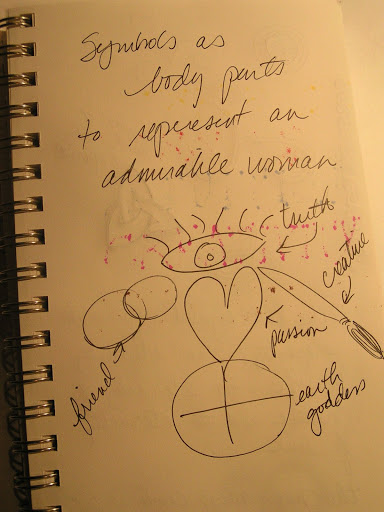 Symbols as
body parts
to represent an
admirable woman
truth
creative
passion
friend
earth
goddess